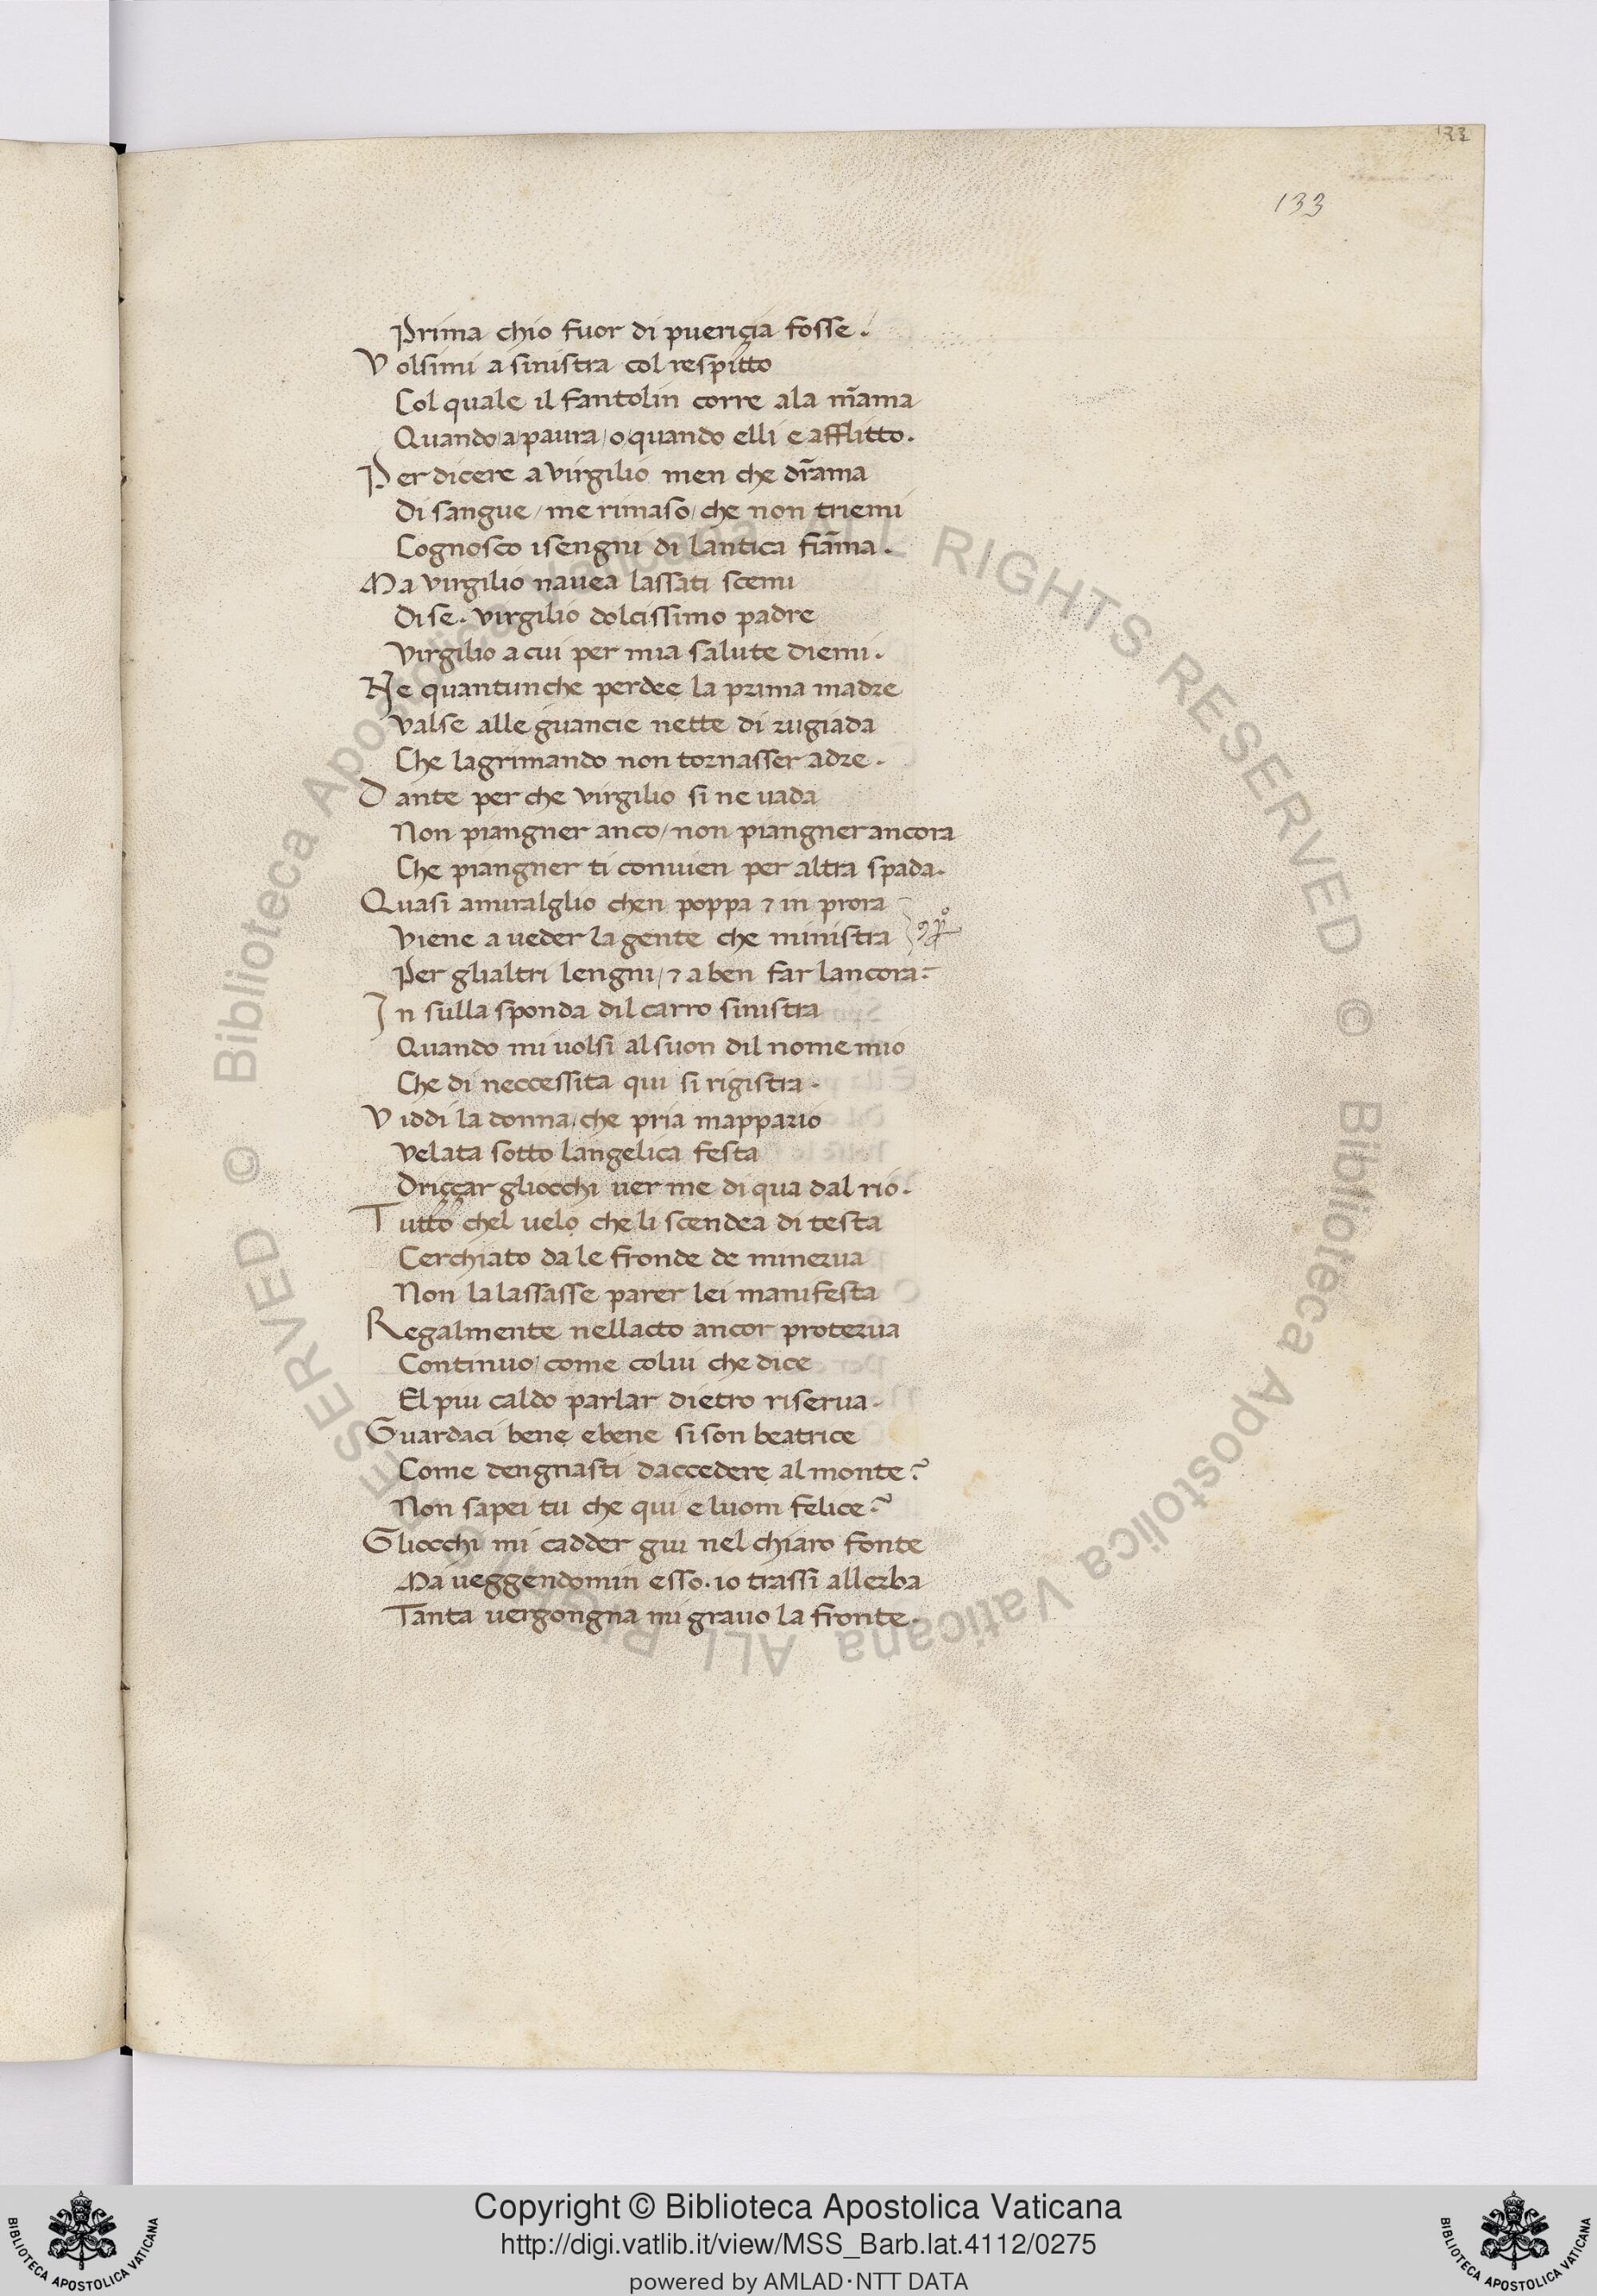 133
133
Prima chio fuor di puericia fosse.
Volsimi a sinistra col respitto
Col quale il fantolin corre ala m̄ama
Quando/a/paura/o/quando elli e afflitto.
Per dicere a virgilio men che dr̄ama
Di sangue/me rimaso/che non triemi
Cognosco isengni di lantica fiāma.
Ma virgilio navea lassati scemi
Di se. virgilio dolcissimo padre
Virgilio a cui per mia salute diemi.
Ne quantunche perdee la prima madre
Valse alle guancie nette di rugiada
Che lagrimando non tornasser adre.
Dante per che virgilio si ne vada
Non piangner anco/non piangner ancora
Che piangner ti convien per altra spada.
Quasi amiralglio chen poppa ⁊ in prora
Viene a veder la gente che ministra
Per glialtri lengni/⁊ a ben far lancora:
In sulla sponda dil carro sinistra
Quando mi volsi al suon dil nome mio
Che di neccessita qui si rigistra.
Viddi la donna/che pria mappario
Velata sotto langelica festa
Driççar gliocchi ver me di qua dal rio.
Tutto chel velo che li scendea di testa
Cerchiato da le fronde de minerva
Non la lassasse parer lei manifesta
Regalmente nellacto ancor proterva
Continuo/come colui che dice
El piu caldo parlar dietro riserva.
Guardaci bene ebene si son beatrice
Come dengnasti daccedere al monte?
Non sapei tu che qui e luom felice?
Gliocchi mi cadder giu nel chiaro fonte
Ma veggendomin esso. io trassi allerba
Tanta vergongna mi gravo la fronte.
© Biblioteca Apostolica Vaticana ALL RIGHTS RESERVED © Biblioteca Apostolica Vaticana ALL RIGHTS RESERVED
Copyright © Biblioteca Apostolica Vaticana
http://digi.vatlib.it/view/MSS_Barb.lat.4112/0275
powered by AMLAD·NTT DATA
BIBLIOTECA APOSTOLICA VATICANA
BIBLIOTECA APOSTOLICA VATICANA